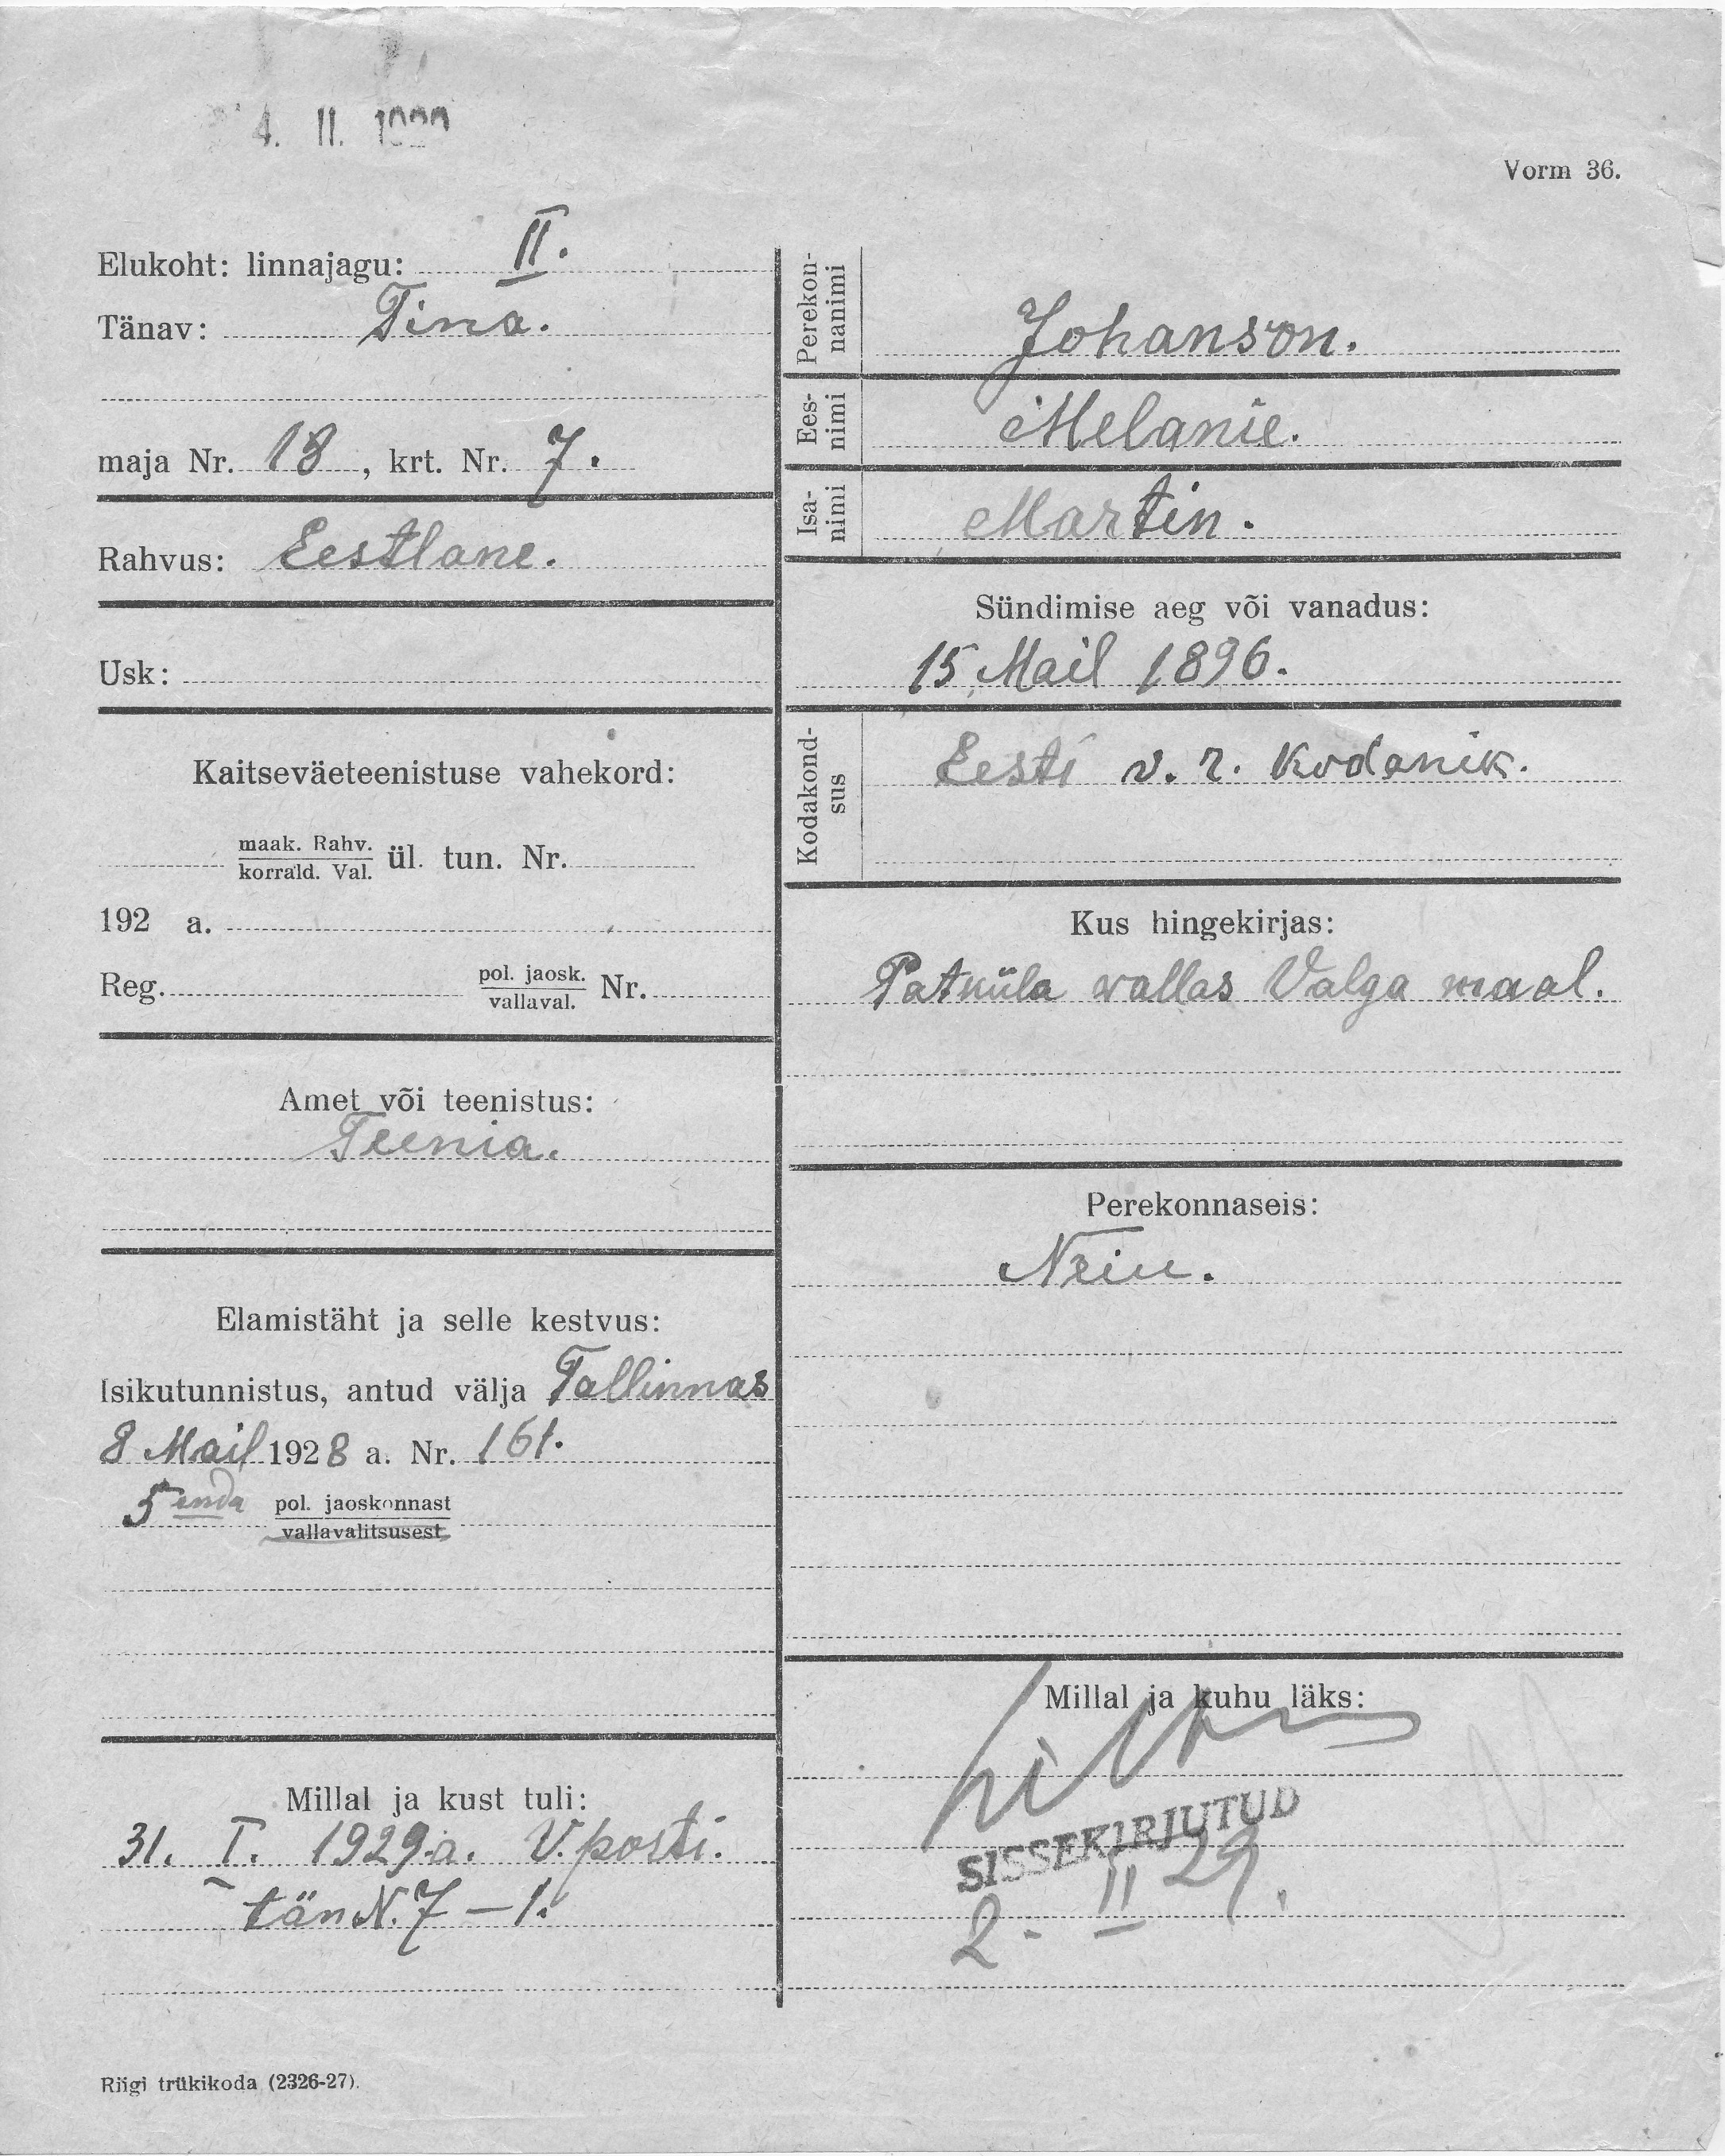 4. II. 1929
Vorm 36.
Elukoht: linnajagu: II.
Tänav: Tina.
maja Nr. 18, krt. Nr. 7.
Rahvus: Eestlane.
Usk:
Kaitseväeteenistuse vahekord:
maak. Rahv.
korrald. Val.
ül. tun. Nr.
192 a.
Reg. pol. jaosk. Nr.
vallaval.
Amet või teenistus:
Teenia.
Elamistäht ja selle kestvus:
Isikutunnistus, antud välja Tallinnas
8 Mail 1928 a. Nr. 161.
5 enda pol. jaoskonnast
vallavalitsusest
Millal ja kust tuli:
31. I. 1929.a. V. posti.
tän N. 7 – 1.
Perekon-
nanimi
Johanson.
Ees-
nimi
Melanie.
Isa-
nimi
Martin.
Sündimise aeg või vanadus:
15 Mail 1896.
Kodakond-
sus
Eesti v. r. kodanik.
Kus hingekirjas:
Patküla wallas Valga maal.
Perekonnaseis:
Neiu.
Millal ja kuhu läks:
SISSEKIRJUTUD
2. II 29.
Riigi trükikoda (2326-27).